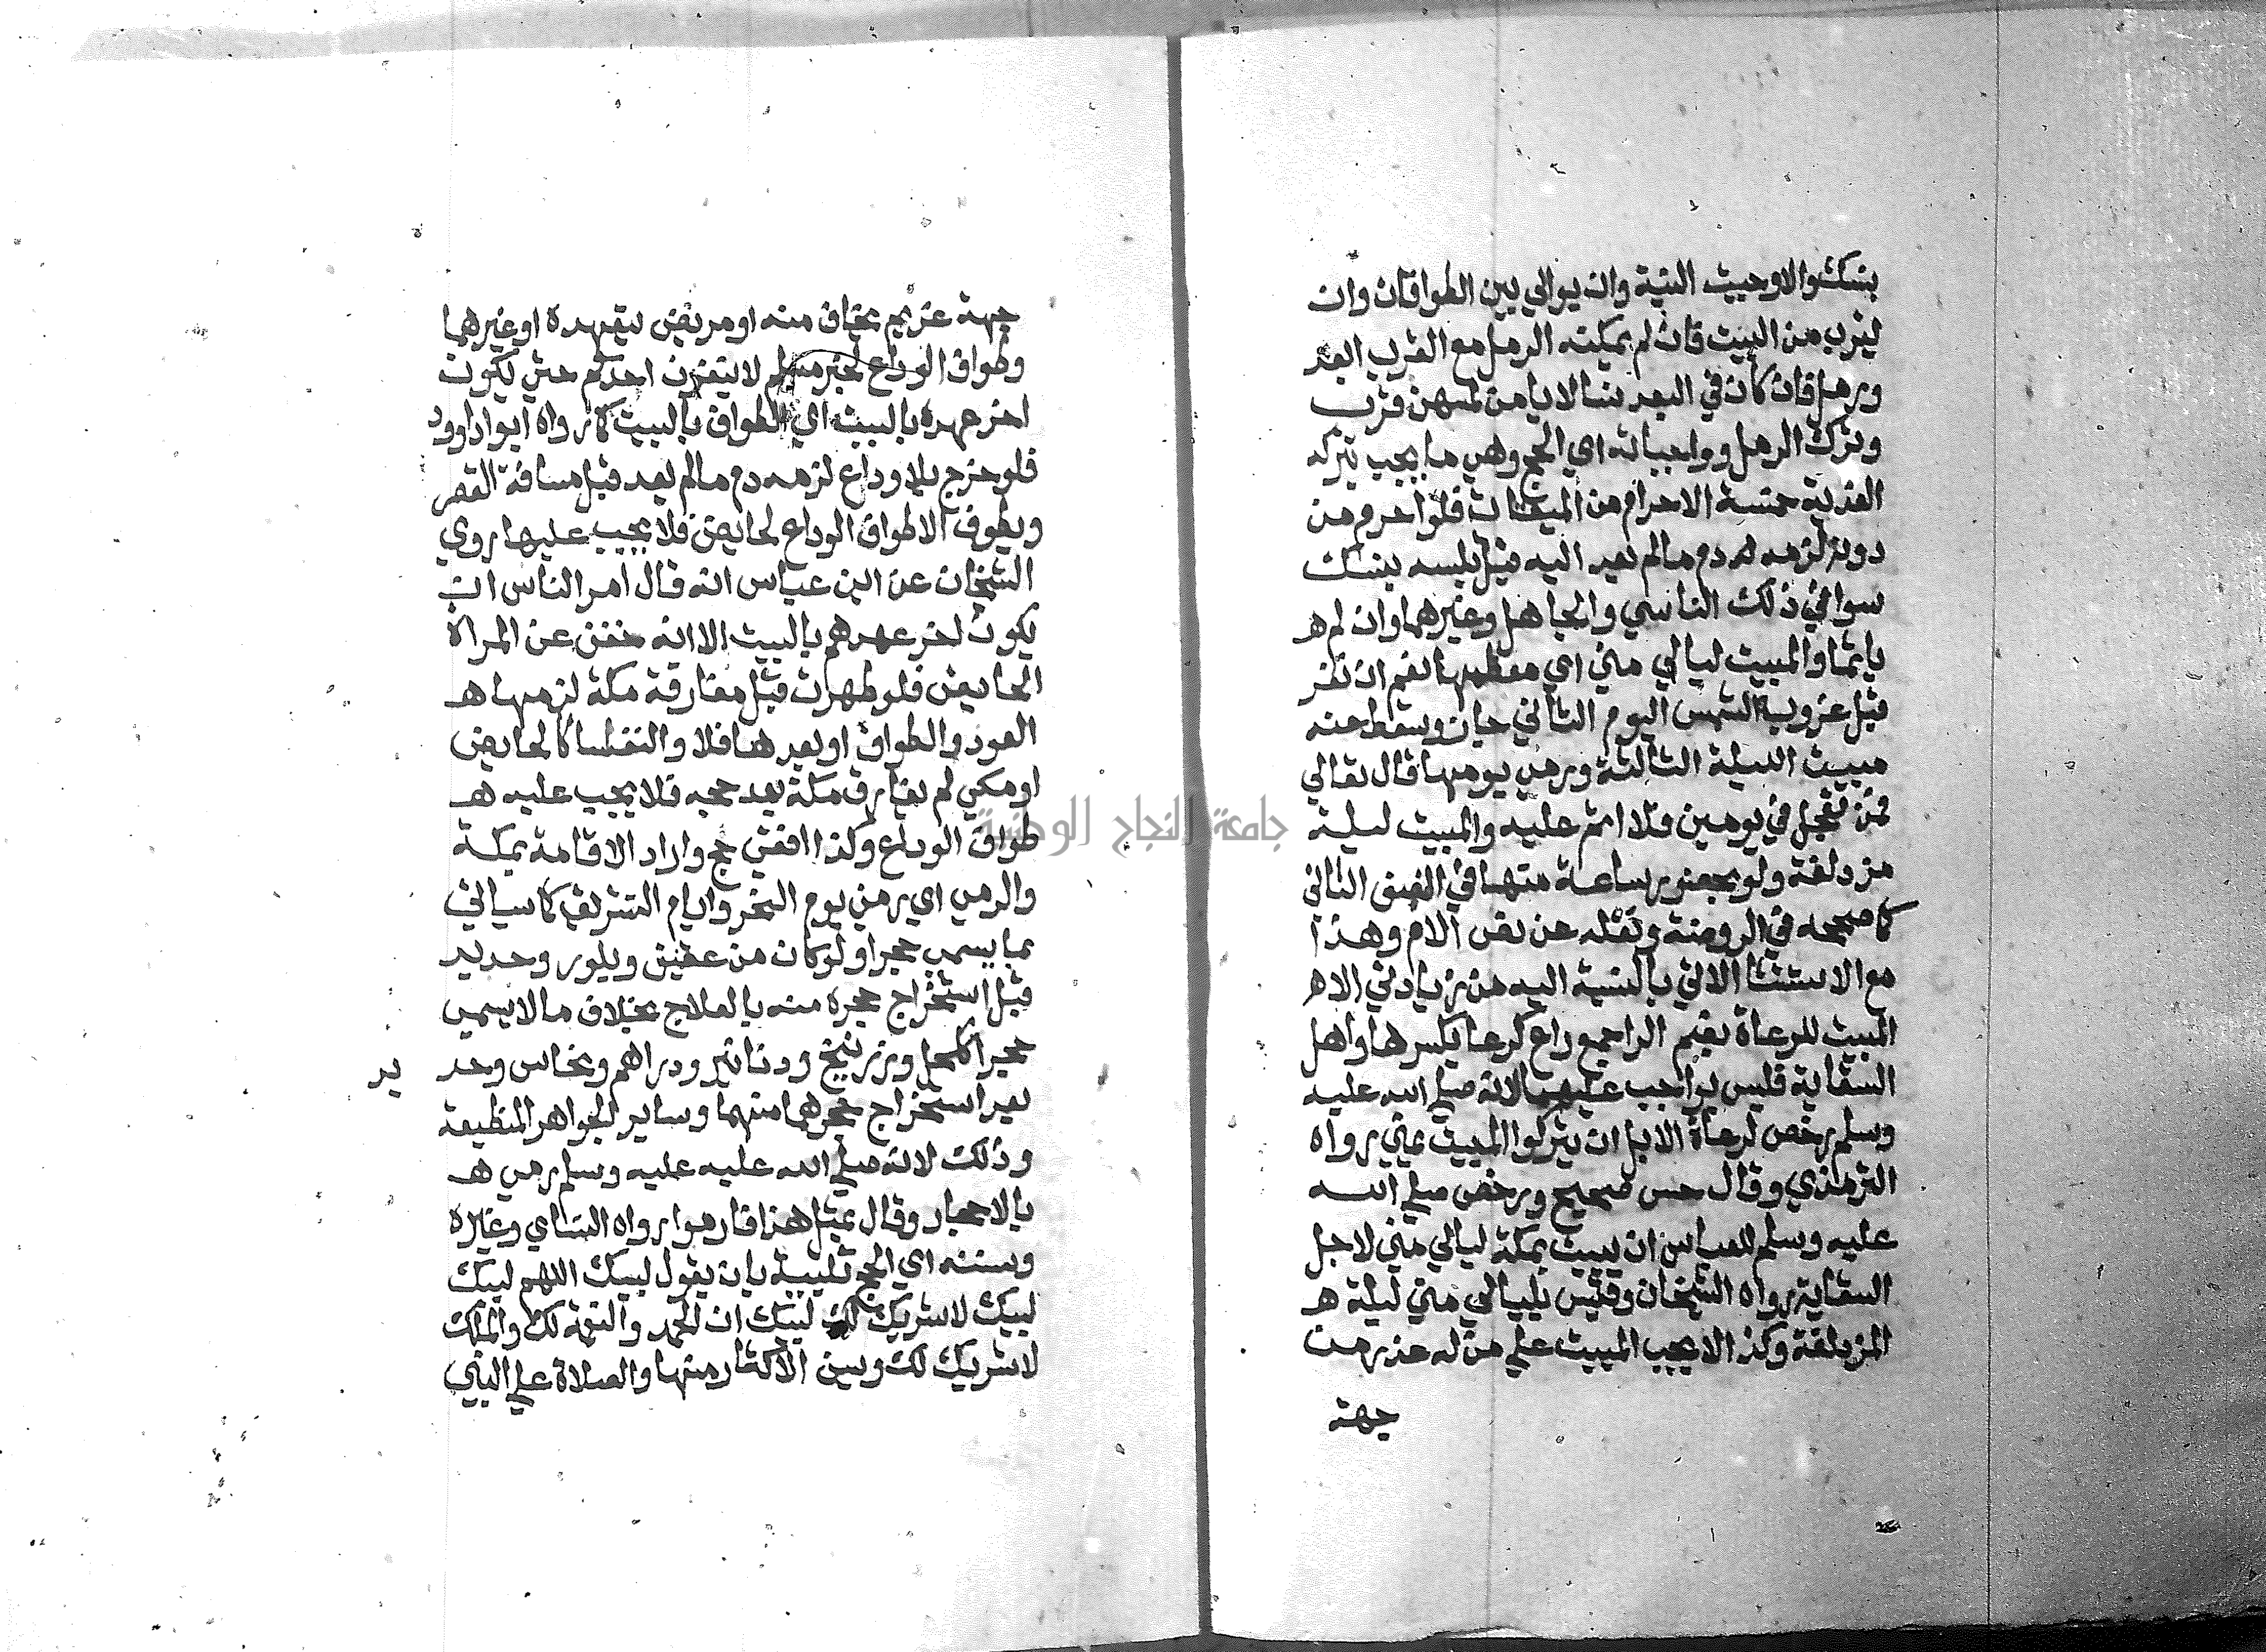 بنسك والا وجبت النية وان يوالي بين الطوافات وان
ليقرب من البيت فان لم يمكنه الرمل مع القرب ابعد
ورمل فان كان في البعد نسا لا يامن لمسهن قرب
وترك الرمل وواجباته اي الحج وهي ما يجب بتركه
الفدية خمسة الاحرام من الميقات فلو احرم من
دونه لزمه دم ما لم يعد اليه قبل تلبسه بنسك
سوا في ذلك الناسي والجاهل وغيرهما وان لم هـ
ياثما والمبيت ليالي منى اي معظمها نعم ان نفر
قبل غروب الشمس اليوم الثاني جاز وسقط عنه
مبيت الليلة الثالثة ورمي يومها قال تعالي
فمن تعجل في يومين فلا اثم عليه والمبيت ليلة
مزدلفة ولو بحضور ساعة منها في النصف الثاني
كما صححه في الروضة ونقله عن نص الام وهذا
مع الاستثنا الاتي بالنسبة اليه من زيادتي الا هـ
المبيت للرعاة بضم الرا جمع راع كرعا بكسرها واهل
السقاية فليس بواجب عليهما لانه صلى الله عليه
وسلم رخص لرعاة الابل ان يتركوا المبيت بمنى رواه
الترمذي وقال حسن صحيح ورخص صلى الله
عليه وسلم للعباس ان يبيت بمكة ليالي منى لاجل
السقاية رواه الشيخان وقيس بليالي منى ليلة هـ
المزدلفة وكذا لا يجب المبيت على من له عذر من
جهة
جهة غريم يخاف منه او مريض يتعهده او غيرهما
وطواف الوداع لخبر مسلم لا ينفرن احدكم حتى يكون
اخر عهده بالبيت اي الطواف بالبيت كما رواه ابوا داوود
فلو خرج بلا وداع لزمه دم ما لم يعد قبل مسافة القصر
ويطوف الا طواف الوداع لحايض فلا يجب عليها روي
الشيخان عن ابن عباس انه قال امر الناس ان
يكون اخر عهدهم بالبيت الا انه خفف عن المراة
الحايض فلو طهرت قبل مفارقة مكة لزمها هـ
العود والطواف او بعدها فلا والنفسا كالحايض
او مكي لم يفارق مكة بعد حجه فلا يجب عليه هـ
طواف الوداع وكذا افقي حج واراد الاقامة بمكة
والرمي اي رمي يوم النحر وايام التشريق كما سياتي
بما يسمى حجرا ولو كان من عقيق وبلور وحديد
قبل استخراج حجره منه بالعلاج بخلاف ما لا يسمى
حجرا ككحل وزرنيخ ودنانير ودراهم ونحاس وحد يد
بعد استخراج حجرهما منهما وساير الجواهر المنطبعة
وذلك لانه صلى الله عليه عليه وسلم رمي هـ
بالاحجار وقال بمثل هذا فارموا رواه النساي وغيره
وسننه اي الحج تلبية بان يقول لبيك اللهم لبيك
لبيك لا شريك لك لبيك ان الحمد والنعمة لك والملك
لا شريك لك ويسن الاكثار منها والصلاة على النبي
جامعة النجاح الوطنية